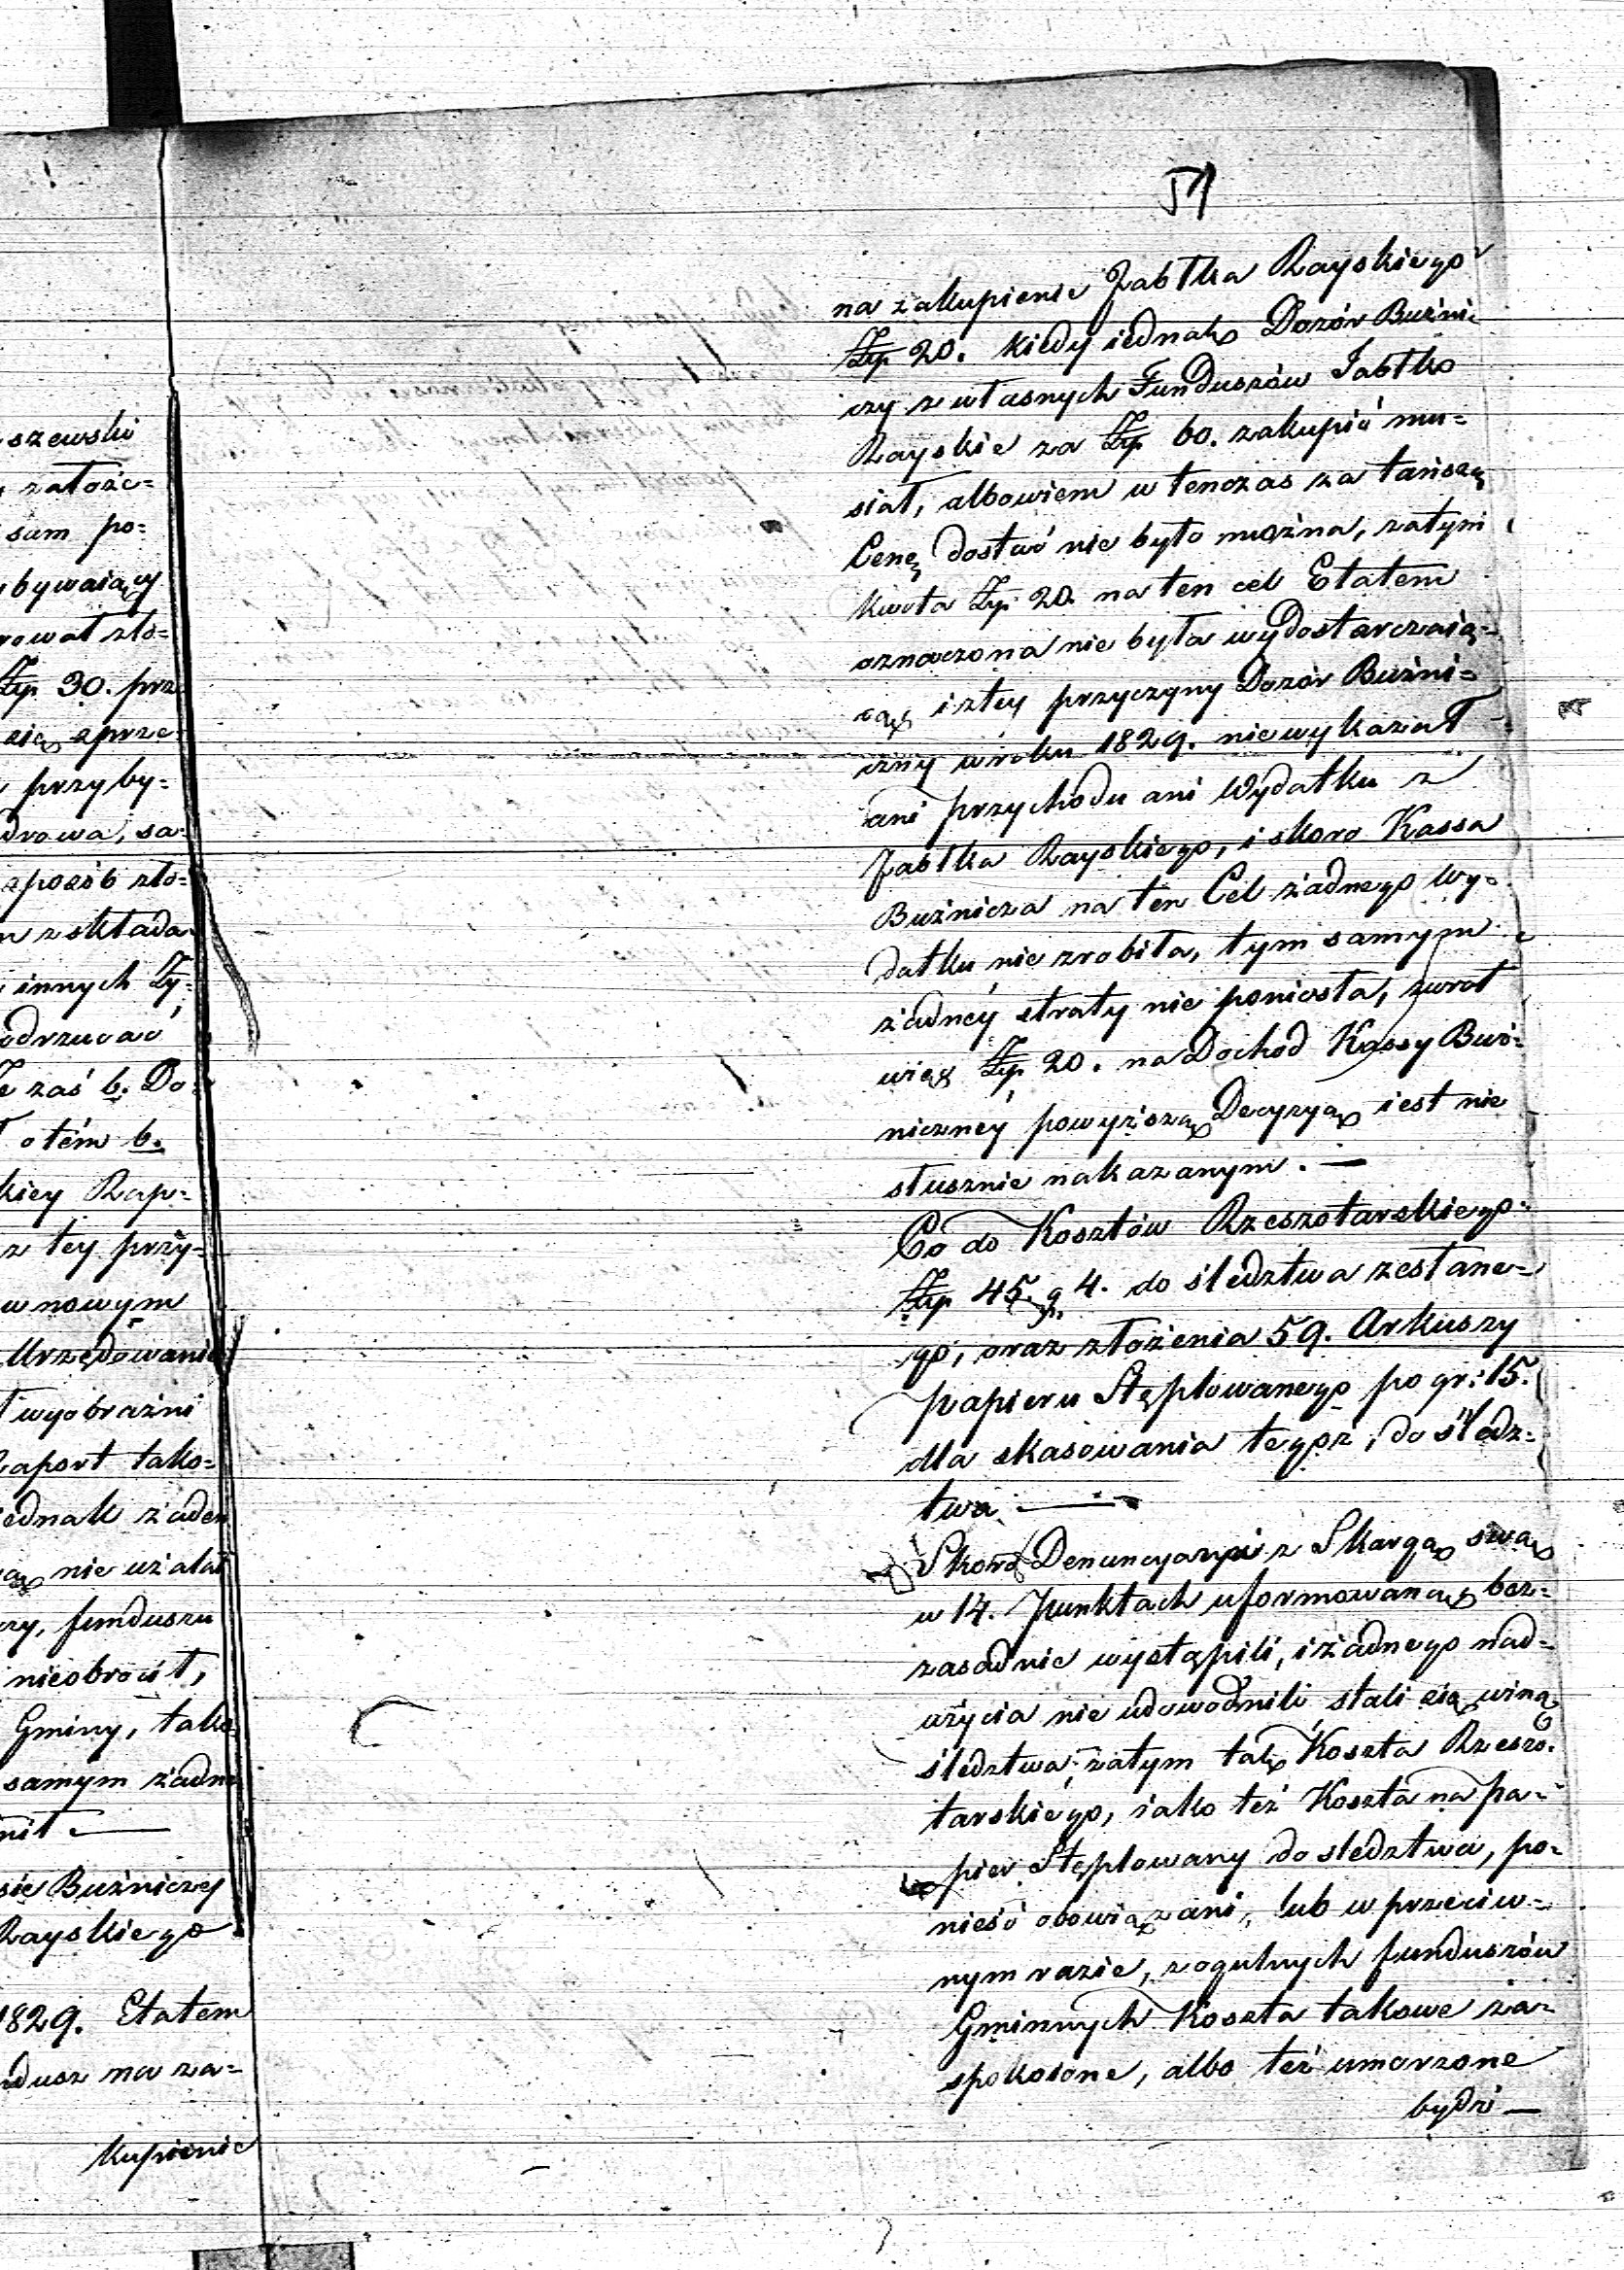 51
szewski
załoźe=
sam po=
bywaiący
rował zło=
Złp 30. prze
się sprze=
przyby=
drowa, sa=
sposób zło=
składa
innych Zy=
odrzucać
zaś b. Do=
o tém b.
kiey Rap=
z tey przy=
w nowym
Urzędowanie
wyobraźni
Raport tako=
iednak żaden
nie użalał
funduszu
nieobrócił,
Gminy, tako
samym żadne
nił —
Buźniczey
Rayskiego
1829. Etatem
na za=
kupienie
na zakupienie Jabłka Rayskiego
Złp 20. kiedy iednak Dozór Buźni=
czy z własnych Funduszów Jabłko
Rayskie za Złp 60. zakupić mu=
siał, albowiem w tenczas za tańszą
Cenę dostać nie było można, zatym
kwota Złp 20. na ten cel Etatem
oznaczona nie była wydostarczaią=
cą i z tey przyczyny Dozór Buźni=
czny w roku 1829. nie wykazał
ani przychodu ani Wydatku z
Jabłka Rayskiego, i skoro Kassa
Buźnicza na ten Cel żadnego Wy=
datku nie zrobiła, tym samym
żadney straty nie poniosła, zwrot
więc Złp 20. na Dochod Kassy Buź=
niczney powyższą Decyzyą iest nie
słusznie nakazanym. —
Co do Kosztów Rzeszotarskiego
Złp 45. g 4. do śledztwa zesłane=
go, oraz złożenia 59. Arkuszy
papieru Stęplowanego po gr: 15.
dla skasowania tegoż, do śledz=
twa —
Skoro Denuncyanci z Skargą swą
w 14. Punktach uformowaną bez=
zasadnie wystąpili, i żadnego nad=
użycia nie udowodnili, stali się winą
śledztwa; zatym tak Koszta Rzeszo=
tarskiego, iako też Koszta na pa=
pier Stęplowany do sledztwa, po=
nieść obowiązani, lub w przeciw=
nym razie, z ogulnych funduszów
Gminnych Koszta takowe za=
spokoione, albo też umorzone
bydź —